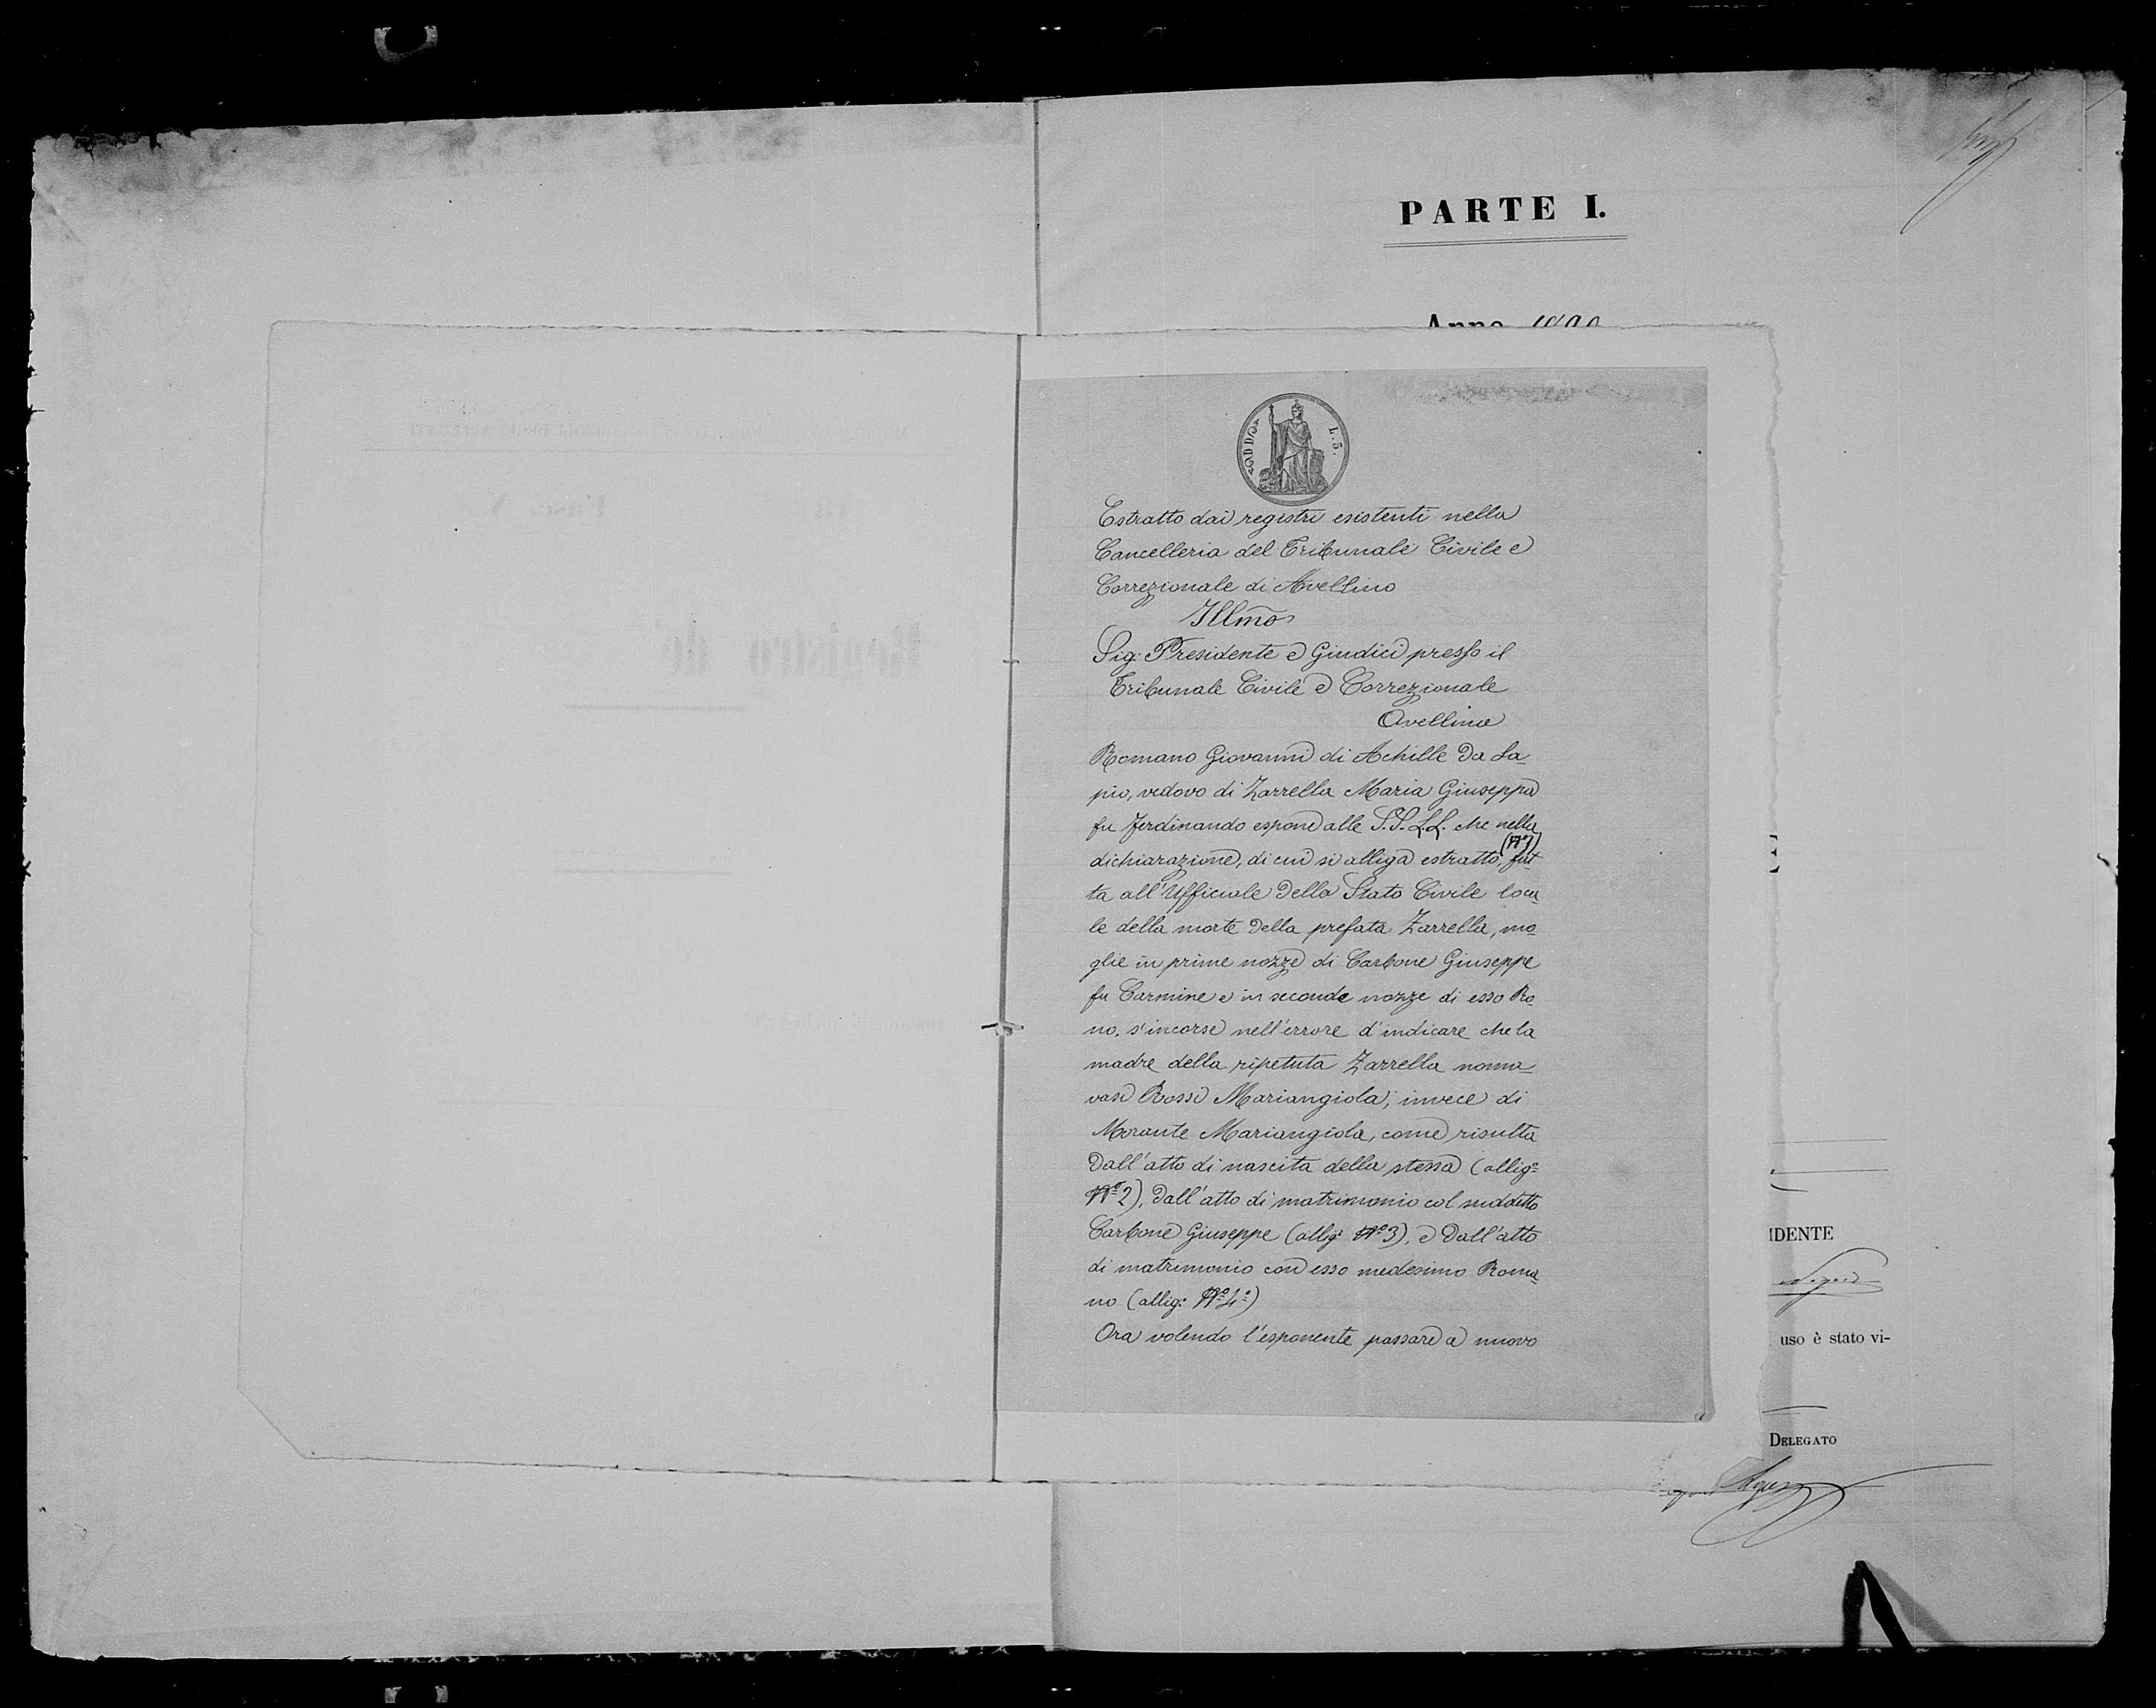 PARTE I.
Anno
L. 5.
Estratto dai registri esistenti nella
Cancelleria del Tribunale Civile e
Correzionale di Avellino
Illmo
Sig: Presidente e Giudici presso il
Tribunale Civile e Correzionale
Avellino
Romano Giovanni di Achille da La-
pio, vedovo di Zarrella Maria Giuseppa
fu Ferdinando espone alle S.S. L.L. che nella
dichiarazione, di cui si alliga estratto, (Nº1) fat-
ta all'Ufficiale dello Stato Civile loca-
le della morte della prefata Zarrella, mo-
glie in prime nozze di Carbone Giuseppe
fu Carmine e in seconde nozze di esso Ro-
no, s'incorse nell'errore d'indicare che la
madre della ripetuta Zarrella noma-
vasi Rossi Mariangiola, invece di
Morante Mariangiola, come risulta
dall'atto di nascita della stessa (allig:
Nº 2), dall'atto di matrimonio col suddetto
Carbone Giuseppe (allig: Nº 3), e dall'atto
di matrimonio con esso medesimo Roma-
no (allig: Nº 4º)
Ora volendo l'esponente passare a nuovo
IDENTE
uso è stato vi-
DELEGATO